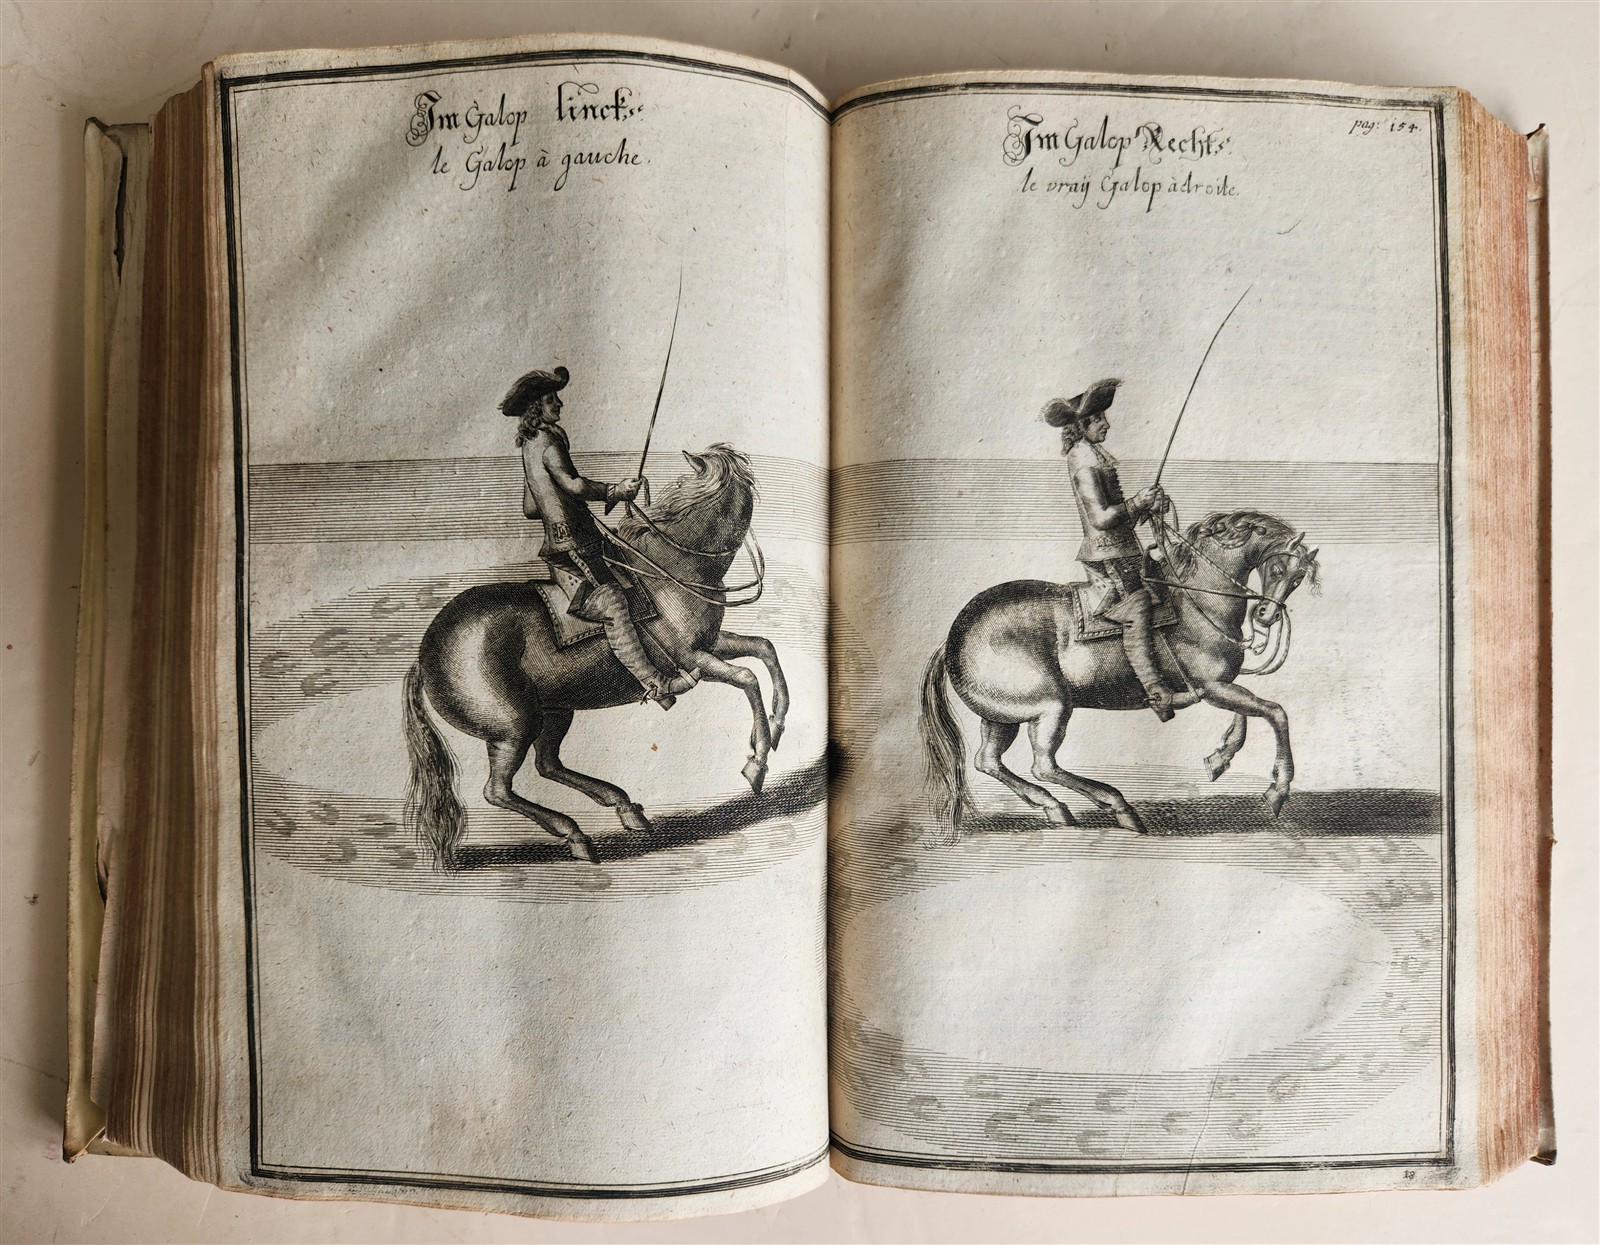 Im Galop lincks
le Galop à gauche.
pag: 154.
Im Galop Rechts
le vraÿ Galop à droite.
18